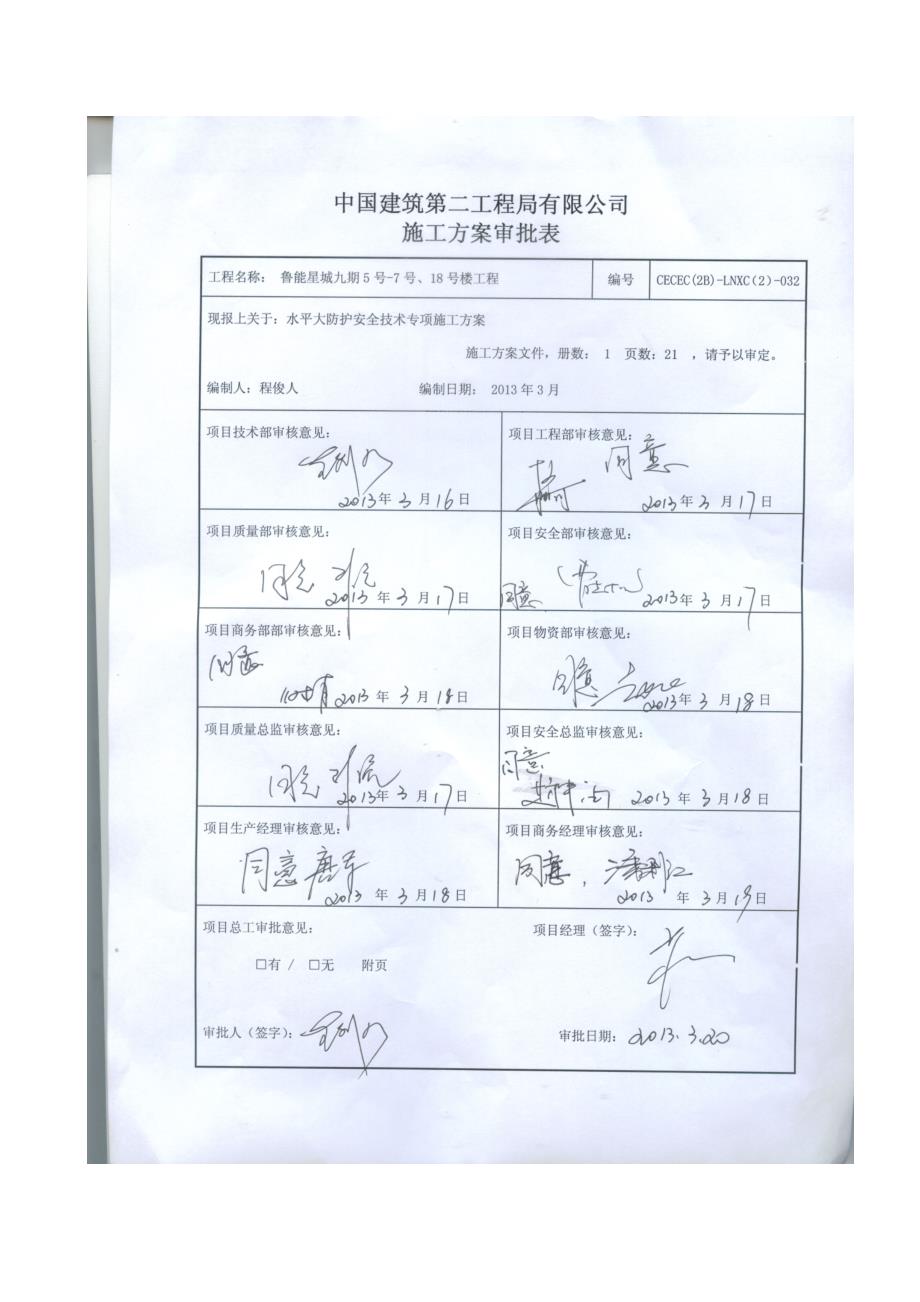 中国建筑第二工程局有限公司
施工方案审批表
工程名称： 鲁能星城九期5号-7号、18号楼工程 编号 CECEC(2B)-LNXC(2)-032
现报上关于：水平大防护安全技术专项施工方案
施工方案文件，册数： 1 页数：21 ，请予以审定。
编制人：程俊人 编制日期： 2013年3月
项目技术部审核意见：
2013年3月16日
项目工程部审核意见：
同意
2013年3月17日
项目质量部审核意见：
同意
2013年3月17日
项目安全部审核意见：
同意
2013年3月17日
项目商务部部审核意见：
同意
2013年3月18日
项目物资部审核意见：
同意
2013年3月18日
项目质量总监审核意见：
同意
2013年3月17日
项目安全总监审核意见：
同意
2013年3月18日
项目生产经理审核意见：
同意 唐军
2013年3月18日
项目商务经理审核意见：
同意，
2013年3月19日
项目总工审批意见：
□有 / □无 附页
项目经理（签字）：
审批人（签字）：
审批日期：2013.3.20